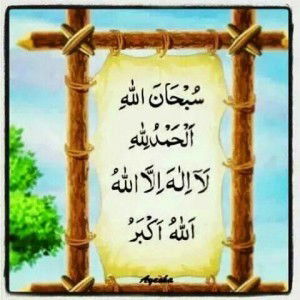 سُبْحَانَ اللهِ
اَلْحَمْدُ لِلهِ
لَآ اِلٰهَ اِلَّا اللهُ
اَللهُ اَكْبَرُ
Ayesha